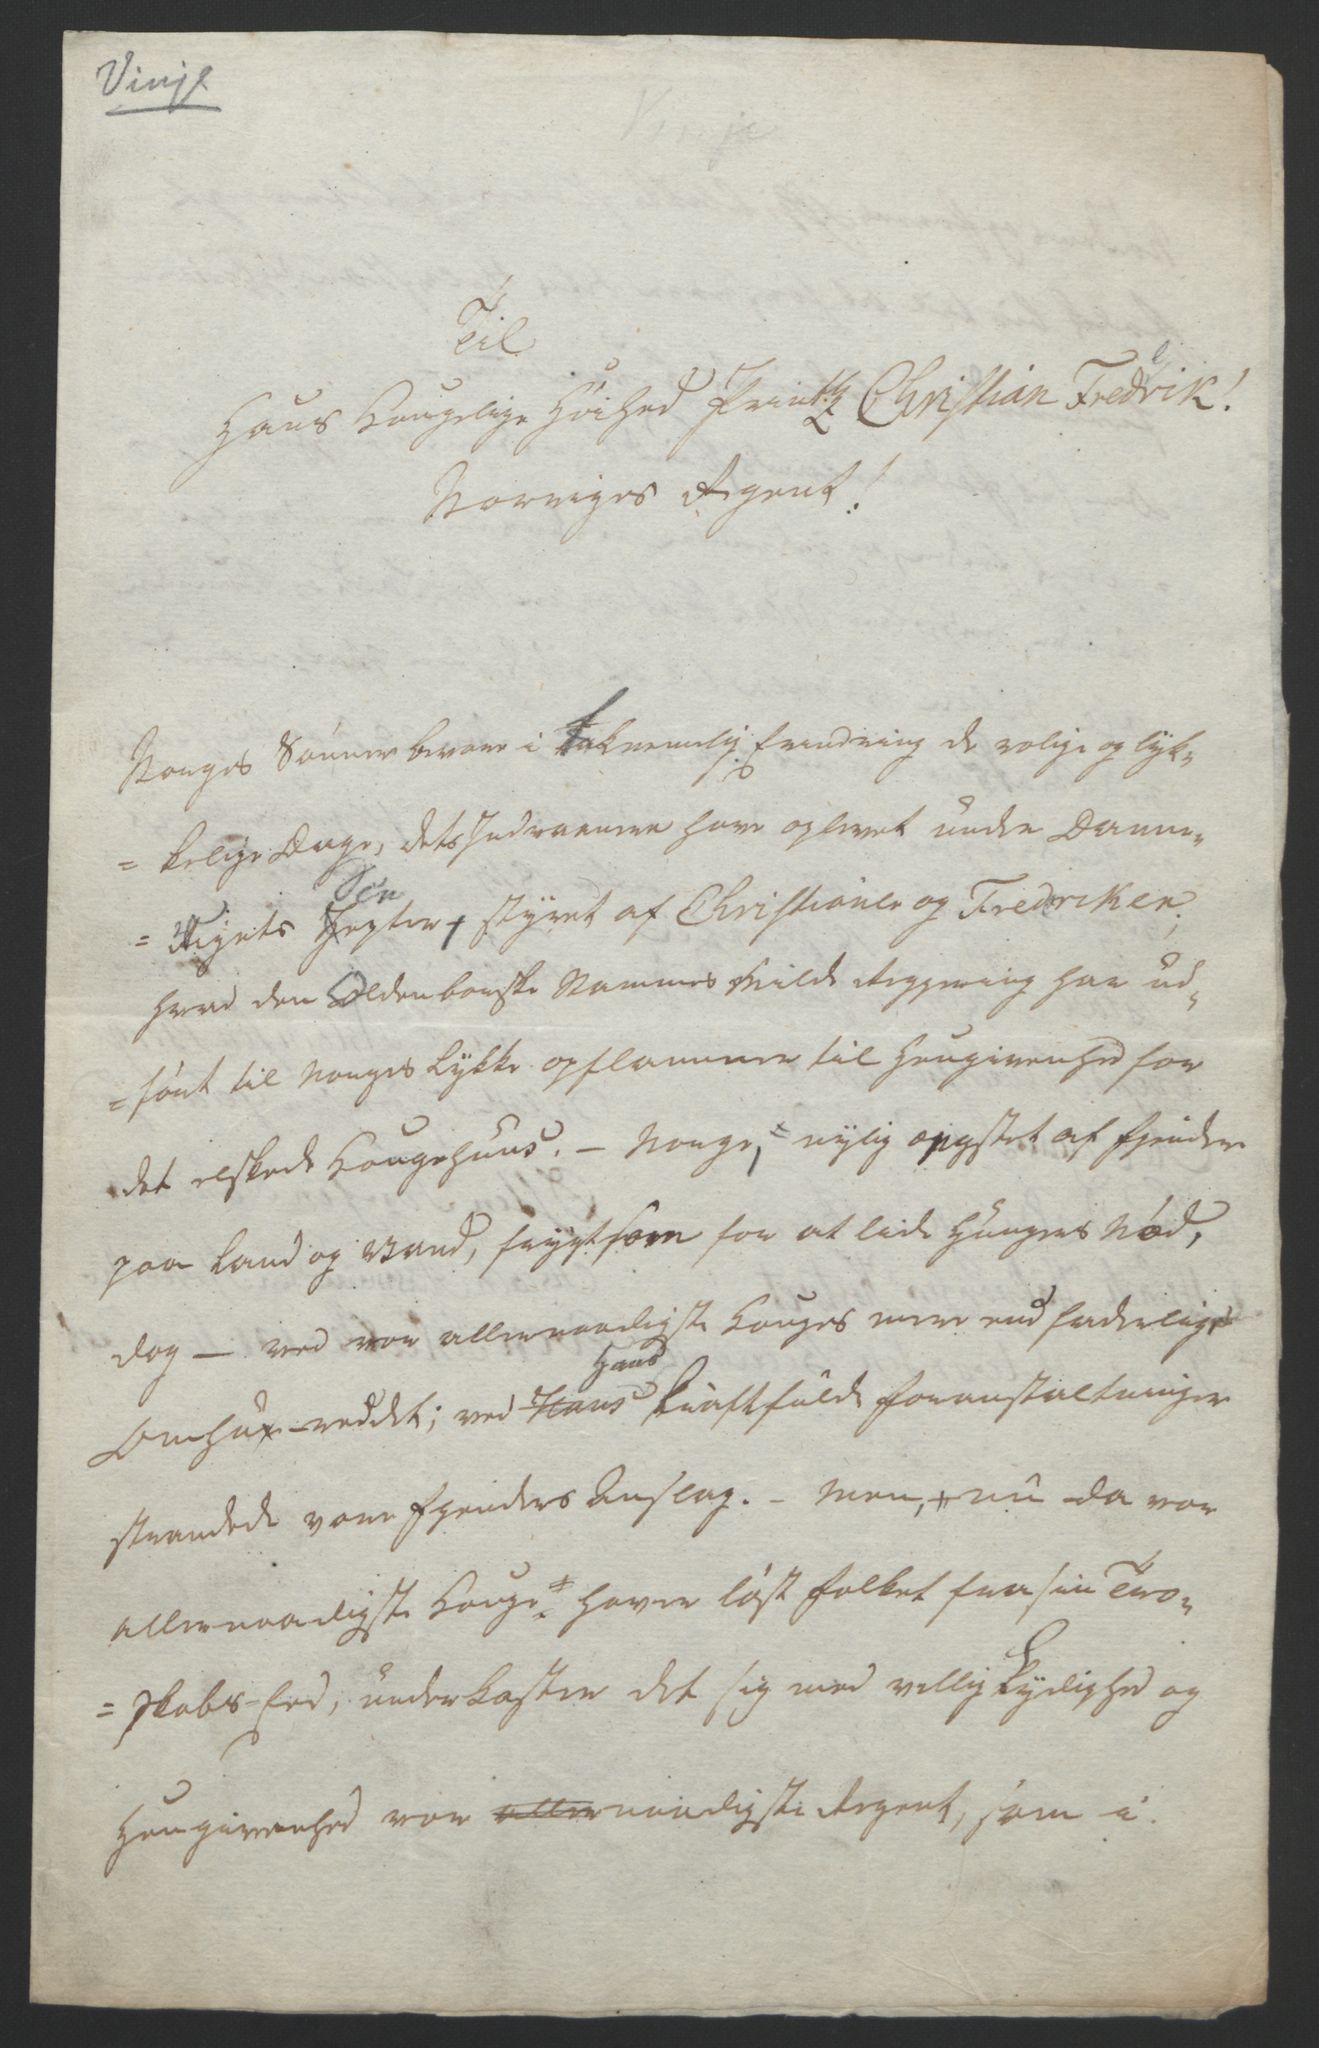 Vinje
Til
Hans Kongelige Höihed Printz Christian Fredrik!
Norriges Regent!
Norges Sönner bevare i taknemelig Erindring de rolige og lyk-
=kelige Dage, dets Indvaanere have oplevet under Danne-
=Rigets Scepter, styret af Christianer og Frederiker;
hvad den Oldenborgske Stammes milde Regjering har ud-
=sönt til Norges Lykke opflammer til Hengivenhed for
det elskede Kongehuus. – Norge, nylig ængstet af Fjender
paa Land og Vand, frygtsom for at lide Hungers Nød,
dog – ved vor allernaadigste Konges mere end faderlige
Omhue reddet; ved Hans Hans kraftfulde Foranstaltninger
strandede vore Fjenders Anslag. – Men, nu da vor
allernaadigste Konge haver löst Folket fra sin Tro-
=skabs-Eed, underkaster det sig med villig Lydighed og
Hengivenhed vor allernaadigste Regent, som i